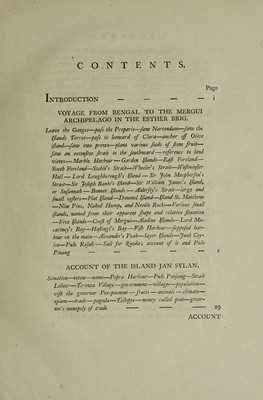 CONTENTS.
Page
INTRODUCTION — — — — i
VOYAGE FROM BENGAL TO THE MERGUI
ARCHIPELAGO IN THE ESTHER BRIG.
Leave the Ganges—pass the Preparis—saw Narcondam—saw the
Islands Torres—pass to leeward of Clara—anchor off Olive
island—saw two prows—plant various seeds of stone fruit—
saw an extensive strait to the southward—reference to land
views—Marble Harbour—Garden Islands—East Foreland—
South Foreland—Stahl's Strait—Wheeler's Strait—Westminster
Hall— Lord Loughborough's Island — Sir John Macpherson's
Strait—Sir Joseph Banks's Island—Sir William James's Island,
or Susannah— Bonnet Islands — Aldersey's Strait—large and
small oysters—Flat Island—Domel Island—Island St. Matthew
—Nine Pins, Naked Hump, and Needle Rock—Various small
islands, named from their apparent shape and relative situation
— Five Islands—Coast of Mergui—Maskos Islands—Lord Ma-
cartney's Bay—Hastings's Bay— Fish Harbour—supposed har-
bour on the main—Alexander's Peak—Sayer Islands—Junk Cey-
lon—Pulo Rajah — Sail for Queda; account of it and Pulo
Pinang — — — — 1
ACCOUNT OF THE ISLAND JAN SYLAN.
Situation—extent—name—Popra Harbour—Pulo Panjang—Strait
Labour — Terowa Village—government—villages—population—
visit the governor Pee-peemont — fruits — animals — climate—
opium—trade—pagoda—Tallapos—money called poot—gover-
nor's monopoly of trade — — — 29
ACCOUNT